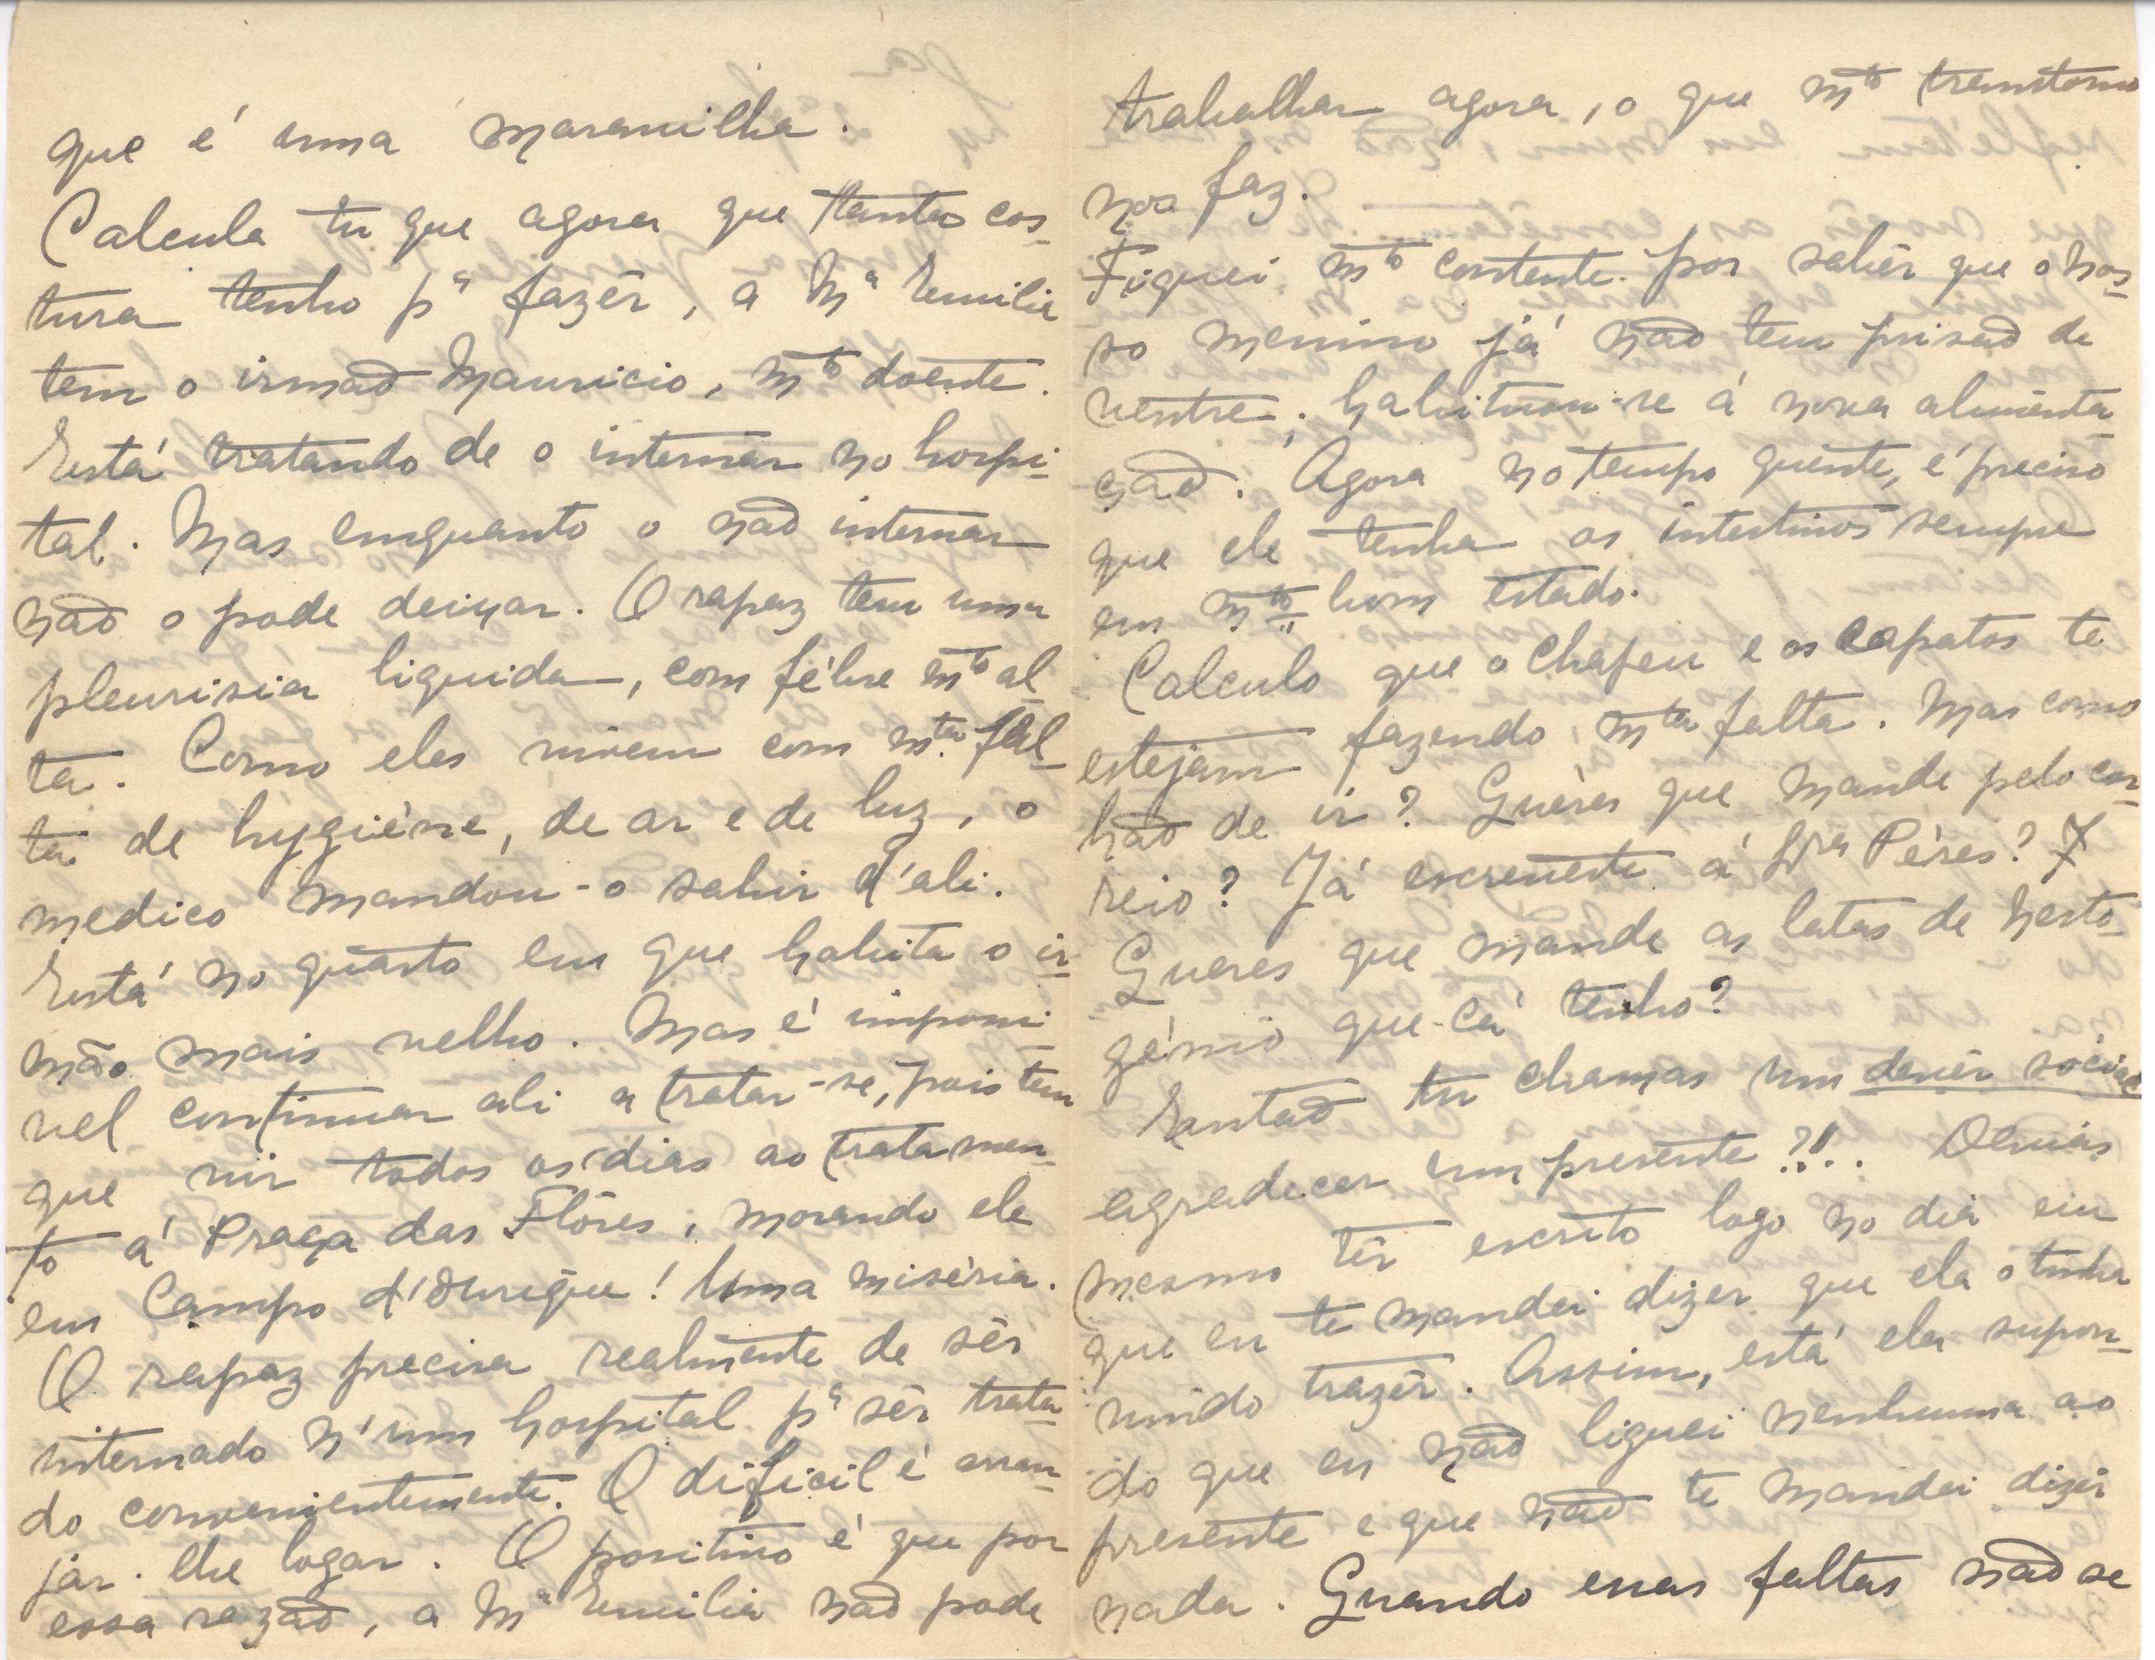 que é uma maravilha.
Calcula tu que agora que tanta cos-
tura tenho pª fazêr, a Mª Emilia
tem o irmaõ Mauricio, mto doente.
Está tratando de o internar no hospi-
tal. Mas emquanto o naõ internar
naõ o pode deixar. O rapaz tem uma
pleurisia liquida, com fébre mto al-
ta. Como eles vivem com mta fal-
ta de hygiéne, de ar e de luz, o
medico mandou-o sahir d'ali.
Está no quarto em que habita o ir-
mão mais velho. Mas é impossi-
vel continuar ali a tratar-se, pois tem
que vir todos os dias ao tratamen-
to á Praça das Flôres, morando ele
em Campo d'Ourique! Uma miséria.
O rapaz precisa realmente de sêr
internado n'um hospital pª sêr trata-
do convenientemente. O dificil é arran-
jar-lhe logar. O positivo é que por
essa razaõ, a Mª Emilia naõ pode
trabalhar agora, o que mto transtorno
nos faz.
Fiquei mto contente por sabêr que o nos-
so menino já naõ tem prisaõ de
ventre; habituou-se á nova alimenta-
çaõ. Agora no tempo quente, é preciso
que ele tenha os intestinos sempre
em mto bom estado.
Calculo que o chapeu e os sapatos te
estejam fazendo mta falta. Mas como
haõ de ir? Quéres que mande pelo cor-
reio? Já escreveste á Sra Péres?
Queres que mande as latas de Nesto-
génio que cá tenho?
Entaõ tu chamas um devêr sócial
agradecer um presente?!!.. Devias
mesmo têr escrito logo no dia em
que eu te mandei dizer que ela o tinha
vindo trazêr. Assim, está ela supon-
do que eu naõ liguei nenhuma ao
presente e que naõ te mandei dizêr
nada. Quando essas faltas naõ se